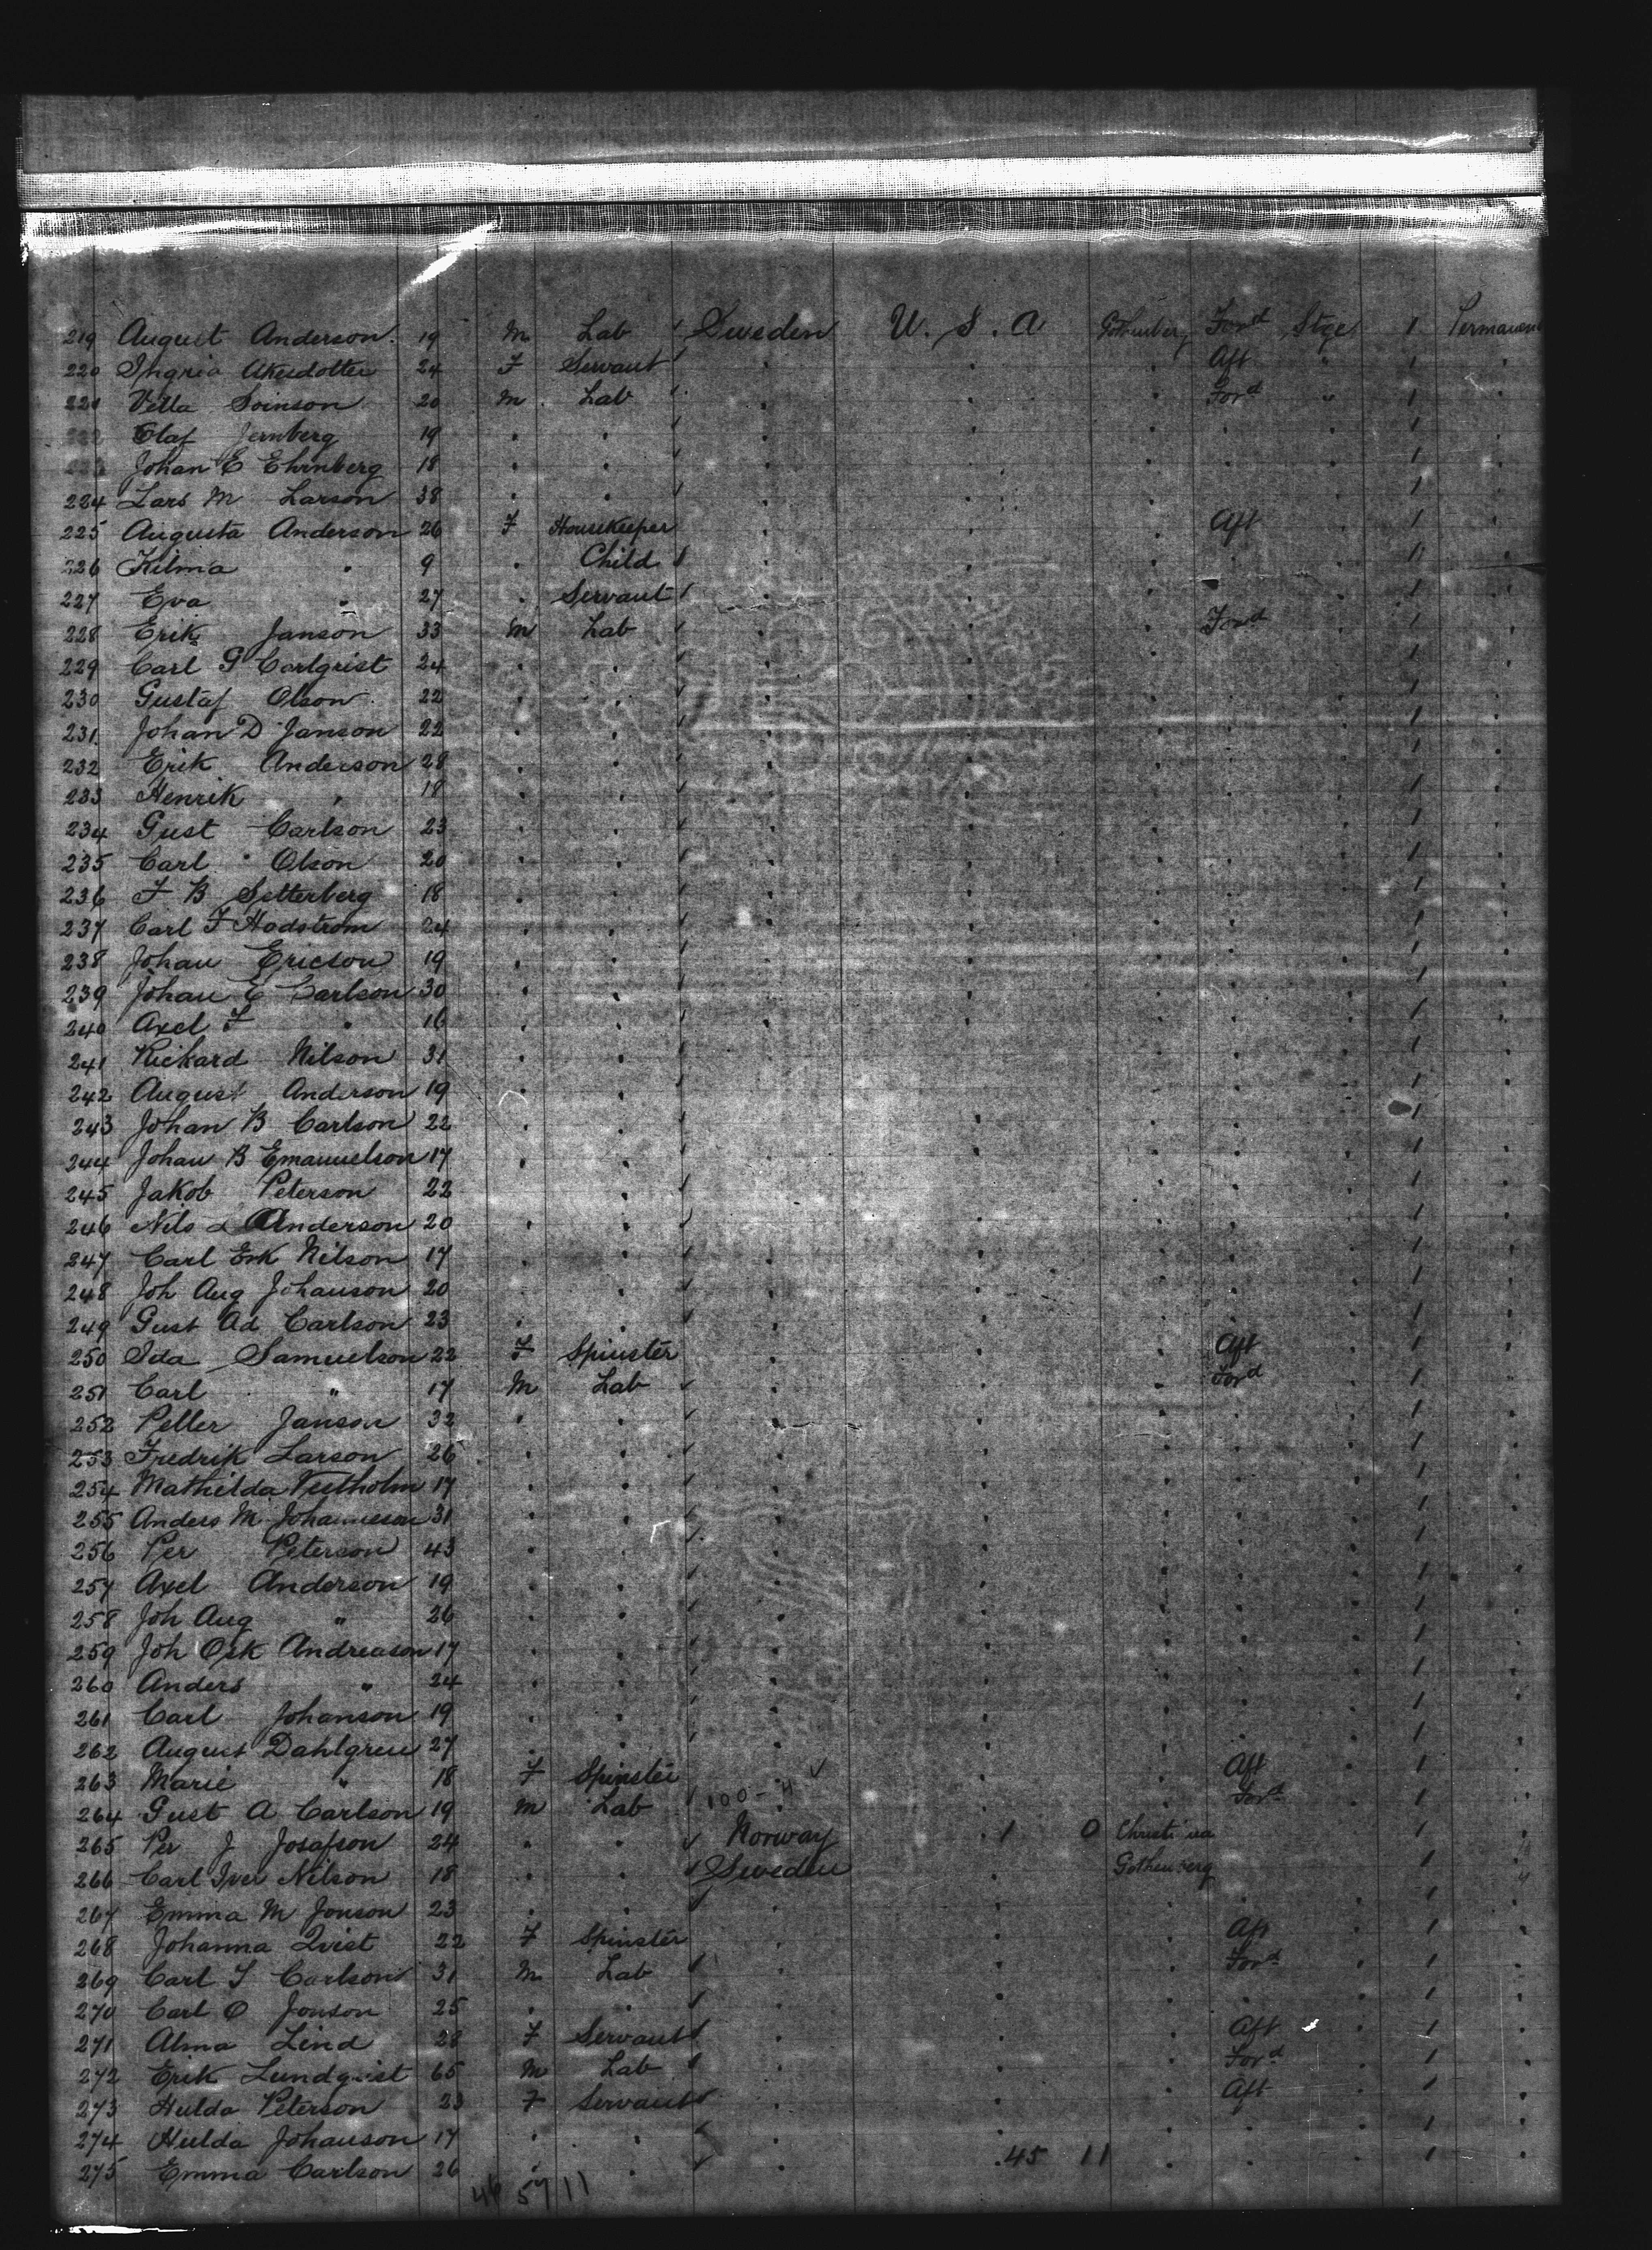 219 August Anderson 19 M Lab Sweden U. S. A Gothenberg For'd Stge 1 Permanent
220 Ingria Akesdotter 24 F Servant Aft " 1
221 Vella Soinson 20 M Lab For'd " 1
222 Olaf Jernberg 19 1
Johan E Ehrnberg 18 1
224 Lars M Larson 38 1
225 Augusta Anderson 26 F Housekeeper Aft 1
226 Kilma " 9 Child 1
227 Eva " 27 Servant 1
228 Erik Janson 33 M Lab For'd 1
229 Carl G Carlqrist 24 1
230 Gustaf Olson 22 1
231 Johan D Janson 22 1
232 Erik Anderson 28 1
233 Henrik " 18 1
234 Gust Carlson 23 1
235 Carl Olson 20 1
236 F B Setterberg 18 1
237 Carl F Hadstrom 24 1
238 Johan Ericson 19 1
239 Johan E Carlson 30 1
240 Axel F " 16 1
241 Rickard Nilson 31 1
242 August Anderson 19 1
243 Johan B Carlson 22 1
244 Johan B Emanuelson 17 1
245 Jakob Peterson 22 1
246 Nils Anderson 20 1
247 Carl Erk Nilson 17 1
248 Joh Aug Johanson 20 1
249 Gust Ad Carlson 23 1
250 Ida Samuelson 22 F Spinster Aft 1
251 Carl " 17 M Lab For'd 1
252 Peller Janson 32 1
253 Fredrik Larson 26 1
254 Mathilda 17 1
255 Anders M Johanneson 31 1
256 Per Peterson 43 1
257 Axel Anderson 19 1
258 Joh Aug " 26 1
259 Joh Osk Andreason 17 1
260 Anders " 24 1
261 Carl Johanson 19 1
262 August Dahlgren 27 1
263 Marie " 18 F Spinster Aft 1
264 Gust A Carlson 19 M Lab 100-4 For'd 1
265 Per J Josafson 24 " Norway 1 0 Christiana 1
266 Carl Iver Nilson 18 Sweden Gothenberg 1
267 Emma M Jonson 23 1
268 Johanna Qvist 22 F Spinster Aft 1
269 Carl J Carlson 31 M Lab For'd 1
270 Carl O Jonson 25 1
271 Alma Lind 28 F Servant Aft 1
272 Erik Lundqvist 65 M Lab For'd 1
273 Hulda Peterson 23 F Servant Aft 1
274 Hulda Johanson 17 1
275 Emma Carlson 26 45 11 1
46 57 11